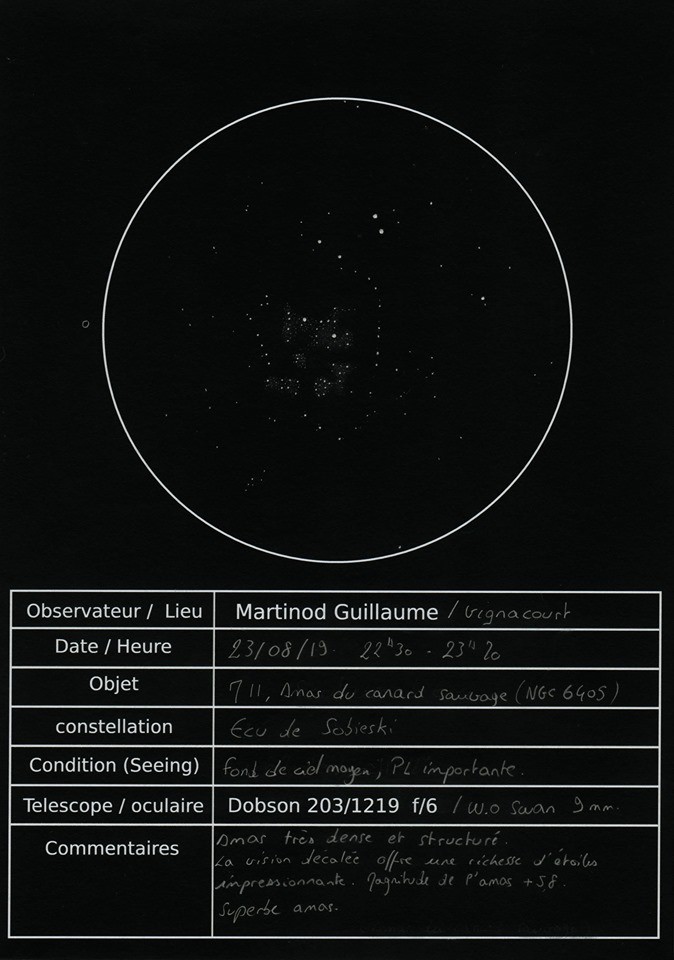 Observateur / Lieu Martinod Guillaume / Vignacourt
Date / Heure 23/08/19. 22h30 - 23h20
Objet M11, Amas du canard sauvage (NGC 6405)
constellation Ecu de Sobieski
Condition (Seeing) fond de ciel moyen, PL importante.
Telescope / oculaire Dobson 203/1219 f/6 / W.O Swan 9mm.
Commentaires Amas très dense et structuré.
La vision décalée offre une richesse d'étoiles
impressionnante. Magnitude de l'amas +5,8.
Superbe amas.